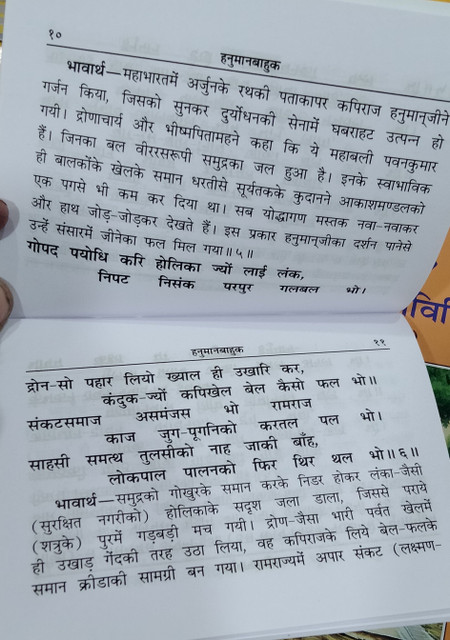 १०
हनुमानबाहुक
भावार्थ—महाभारतमें अर्जुनके रथकी पताकापर कपिराज हनुमान्‌जीने
गर्जन किया, जिसको सुनकर दुर्योधनकी सेनामें घबराहट उत्पन्न हो
गयी। द्रोणाचार्य और भीष्मपितामहने कहा कि ये महाबली पवनकुमार
हैं। जिनका बल वीररसरूपी समुद्रका जल हुआ है। इनके स्वाभाविक
ही बालकोंके खेलके समान धरतीसे सूर्यतकके कुदानने आकाशमण्डलको
एक पगसे भी कम कर दिया था। सब योद्धागण मस्तक नवा-नवाकर
और हाथ जोड़-जोड़कर देखते हैं। इस प्रकार हनुमान्‌जीका दर्शन पानेसे
उन्हें संसारमें जीनेका फल मिल गया॥५॥
गोपद पयोधि करि होलिका ज्यों लाई लंक,
निपट निसंक परपुर गलबल भो।
हनुमानबाहुक
११
द्रोन-सो पहार लियो ख्याल ही उखारि कर,
कंदुक-ज्यों कपिखेल बेल कैसो फल भो॥
संकटसमाज असमंजस भो रामराज
काज जुग-पूगनिको करतल पल भो।
साहसी समत्थ तुलसीको नाह जाकी बाँह,
लोकपाल पालनको फिर थिर थल भो॥६॥
भावार्थ—समुद्रको गोखुरके समान करके निडर होकर लंका-जैसी
(सुरक्षित नगरीको) होलिकाके सदृश जला डाला, जिससे पराये
(शत्रुके) पुरमें गड़बड़ी मच गयी। द्रोण-जैसा भारी पर्वत खेलमें
ही उखाड़ गेंदकी तरह उठा लिया, वह कपिराजके लिये बेल-फलके
समान क्रीडाकी सामग्री बन गया। रामराज्यमें अपार संकट (लक्ष्मण-